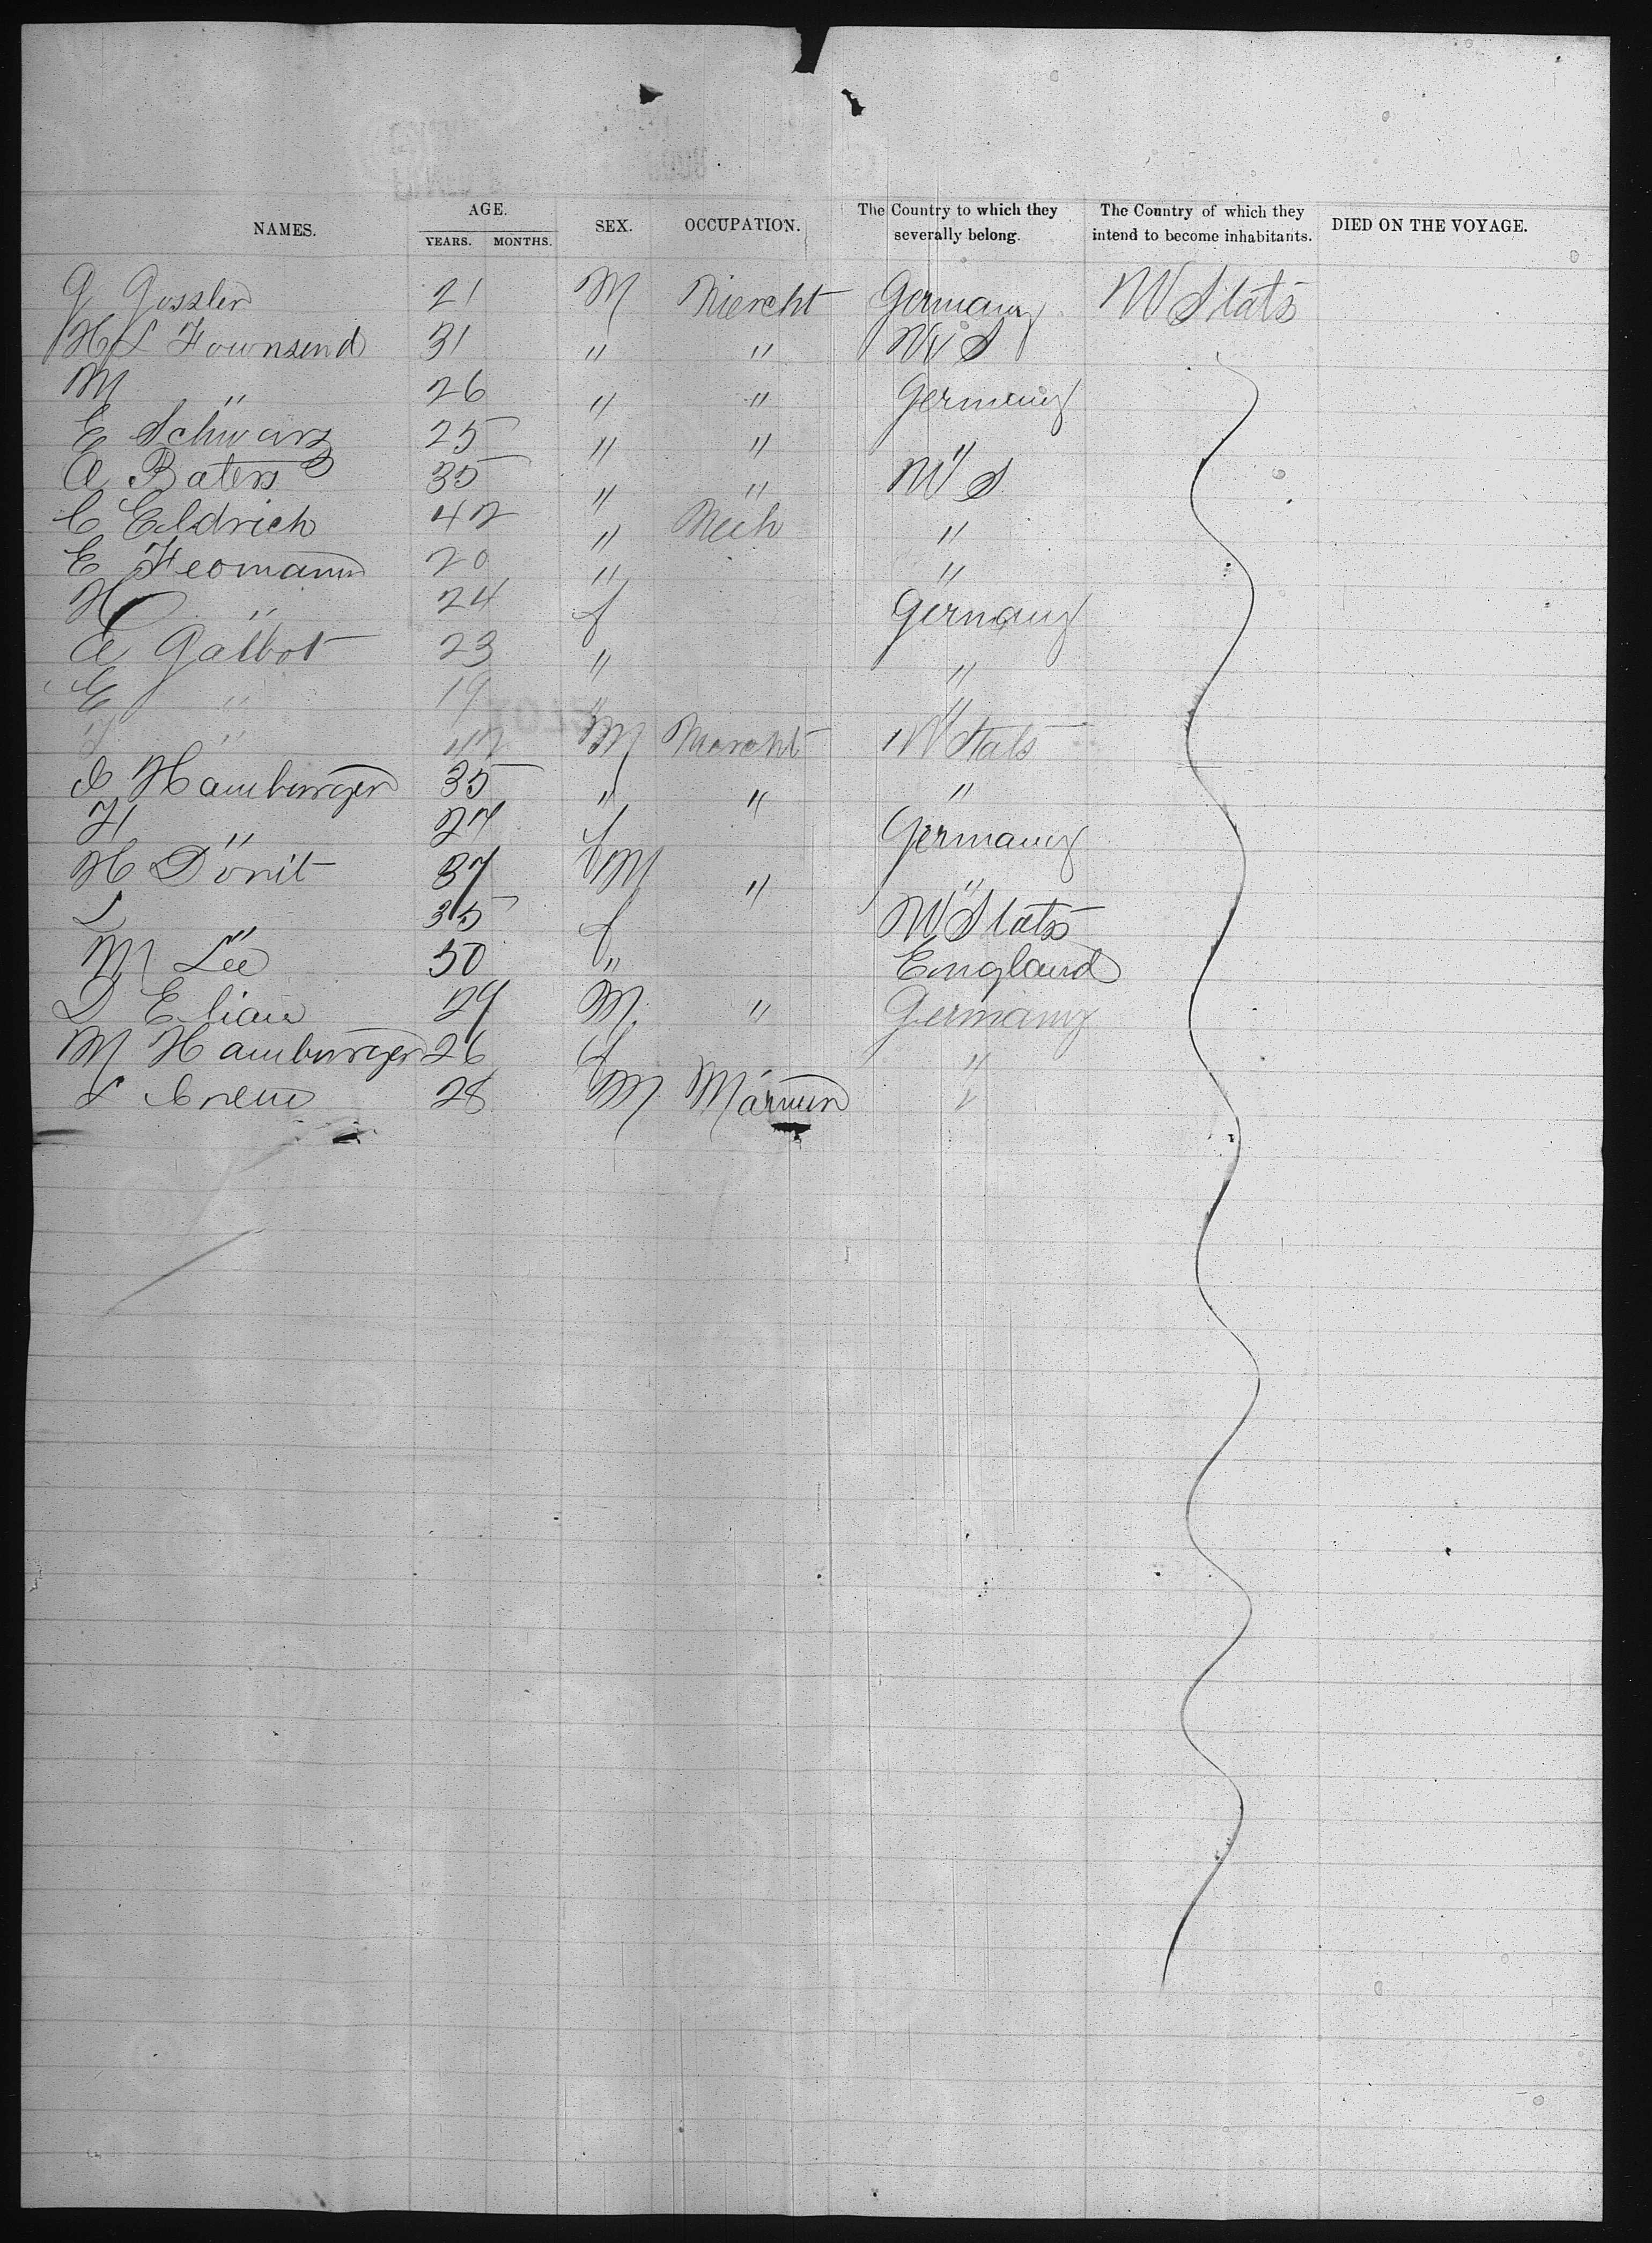 NAMES. AGE. YEARS. MONTHS. SEX. OCCUPATION. The Country to which they severally belong. The Country of which they intend to become inhabitants. DIED ON THE VOYAGE.
G Gossler 21 M Mercht Germany U States
H L Townsend 31 " " U S
M " 26 " " Germany
E Schwarz 25 " " "
A Baters 35 " " U S
C Eldrich 42 " Mech "
E 20 " "
H " 24 f Germany
A Galbot 23 " "
E " 19 " "
" 42 M Marcht U Stats
S Hamburger 35 " " "
H " 24 f Germany
H Dönit 37 M " "
L " 35 f U States
M Lee 50 " England
D Elian 29 M " Germany
M Hamburger 26 f "
L 28 M "